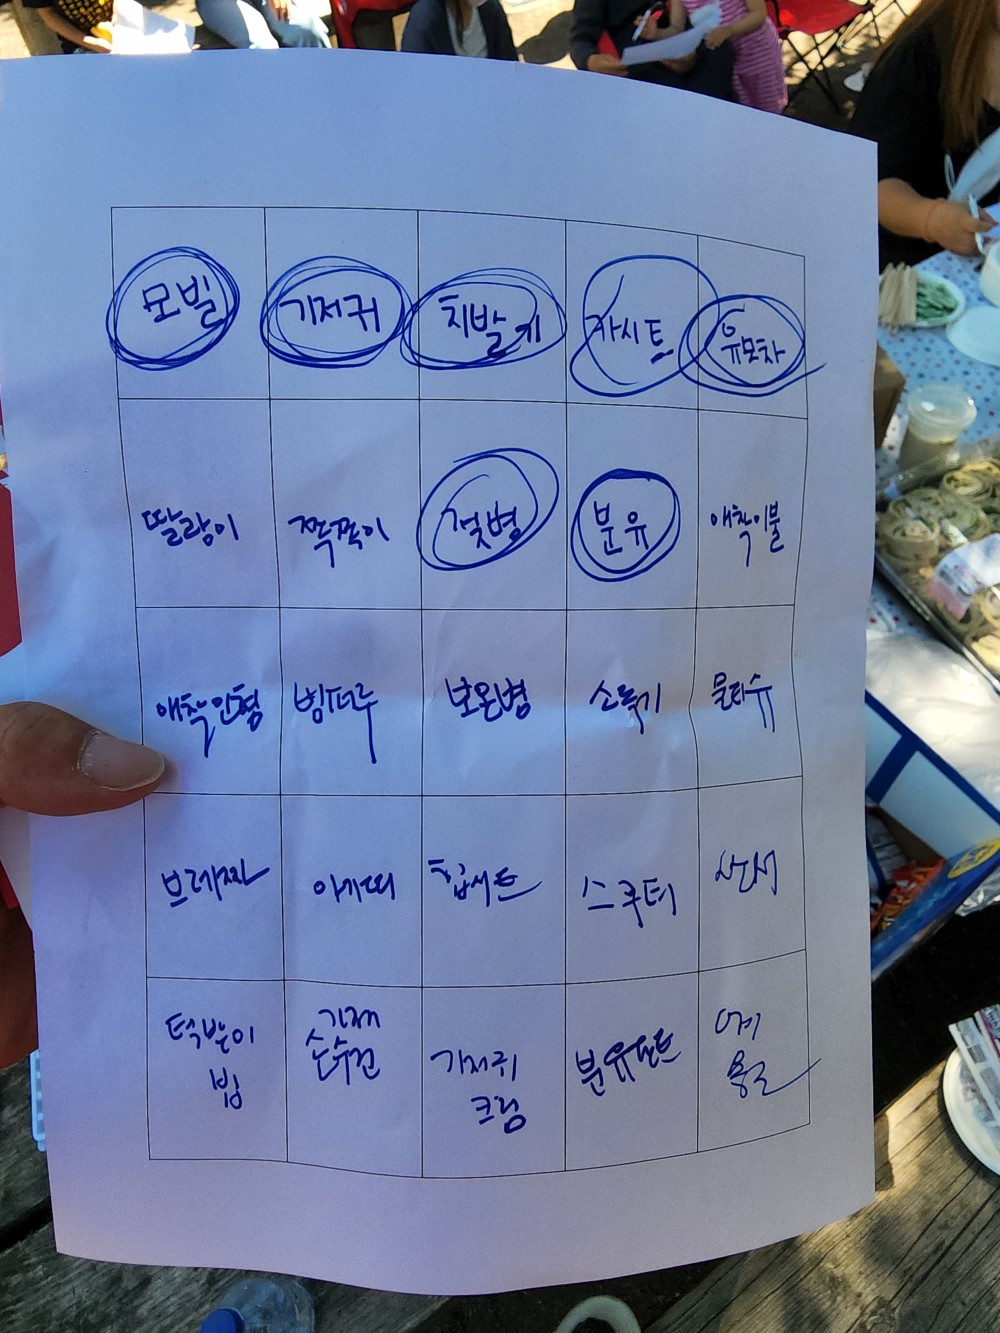 모빌 기저귀 치발기 카시트 유모차
딸랑이 쪽쪽이 젖병 분유 애착이불
애착인형 보온병 소독기 물티슈
브레짜 아기띠 힙시트 스쿠터
턱받이 가제 기저귀 분유포트
빕 손수건 크림